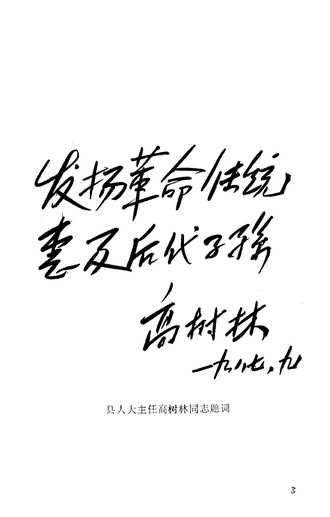 发扬革命传统
惠及后代子孙
高树林
一九八七，九
县人大主任高树林同志题词
3